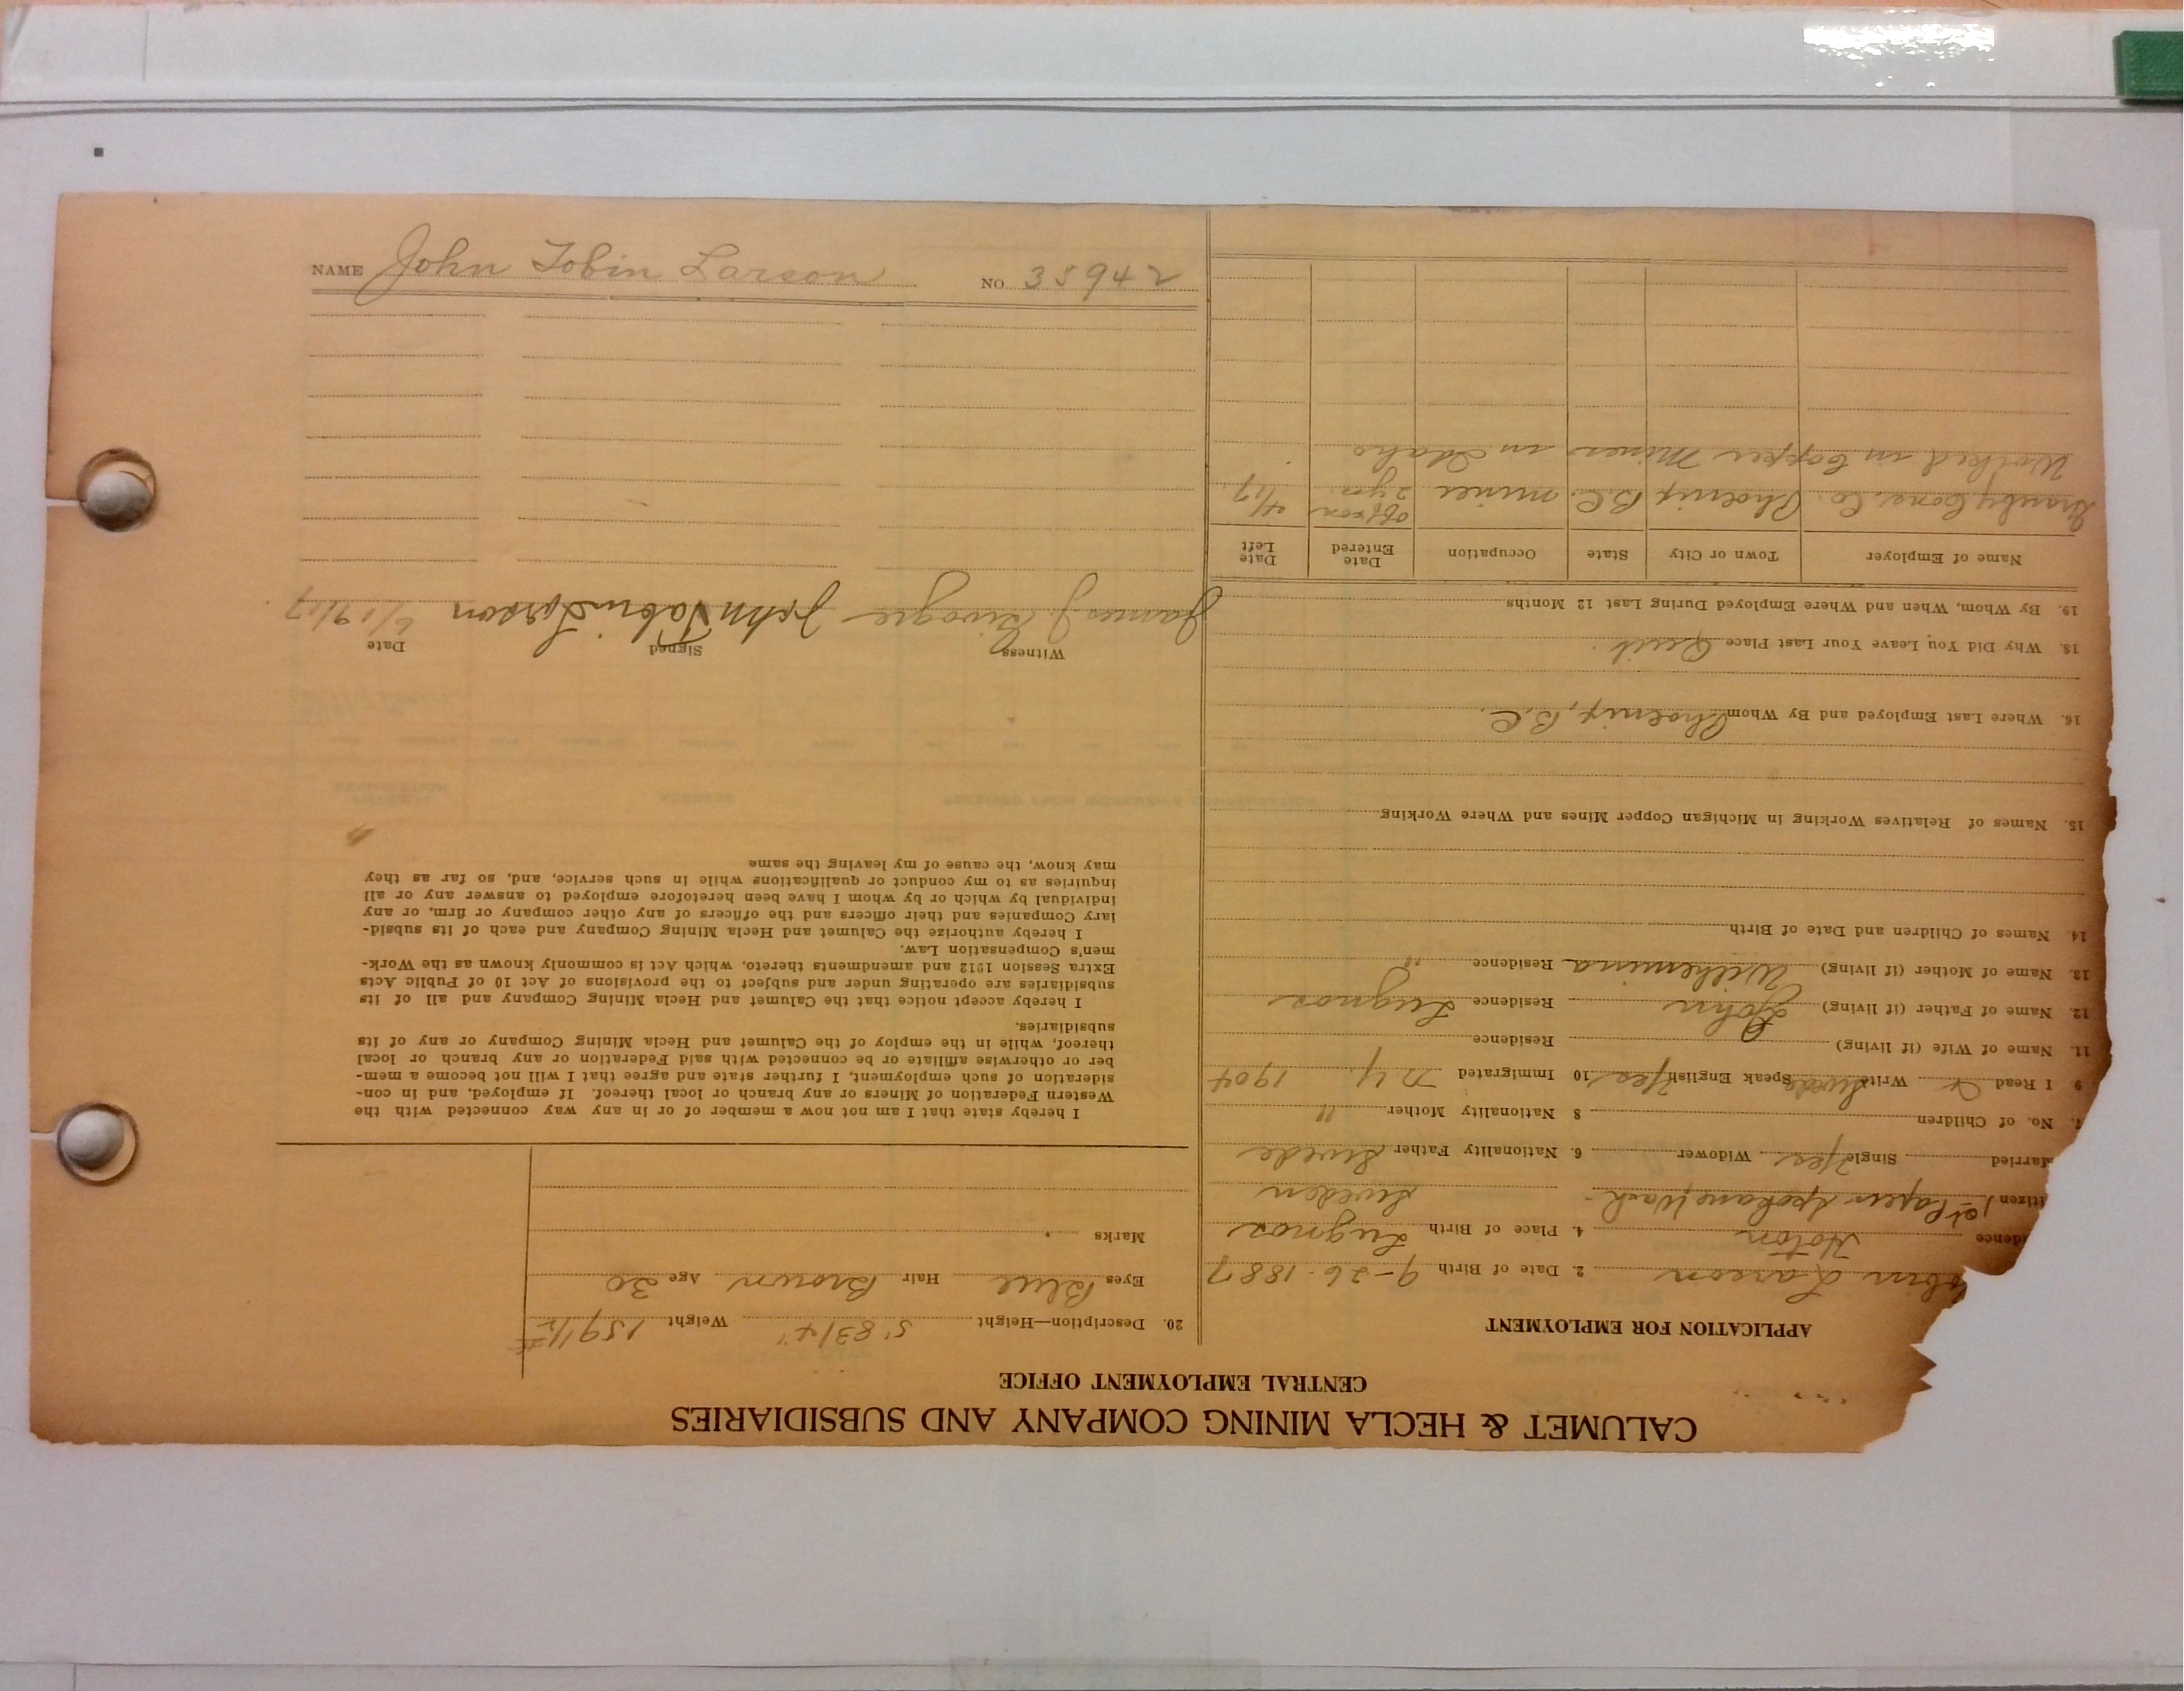 NAME John Tobin Larson NO. 35942
CALUMET & HECLA MINING COMPANY AND SUBSIDIARIES
CENTRAL EMPLOYMENT OFFICE
APPLICATION FOR EMPLOYMENT
obin Larson 2. Date of Birth 9-26-1887
idence Hoton 4. Place of Birth Lugnos
itizen 1st Papers Spokane, Wash. Sweden
Married Single Yes Widower 6. Nationality Father Swede
7. No. of Children 8 Nationality Mother "
9 I Read & Write Swede Speak English Yes 10 Immigrated N.Y. 1904
11. Name of Wife (if living) Residence
12. Name of Father (if living) John Residence Lugnos
13. Name of Mother (if living) Wilhemina Residence "
14. Names of Children and Date of Birth
15. Names of Relatives Working in Michigan Copper Mines and Where Working
16. Where Last Employed and By Whom Phoenix, B.C.
18. Why Did You Leave Your Last Place Quit
19. By Whom, When and Where Employed During Last 12 Months
Name of Employer Town or City State Occupation Date Entered Date Left
Granby Cons. Co. Phoenix B.C. miner 2 yrs. 4/17
Worked in Copper Mines in Idaho
20. Description—Height 5' 8 3/4" Weight 159 1/2 #
Eyes Blue Hair Brown Age 30
Marks
I hereby state that I am not now a member of or in any way connected with the
Western Federation of Miners or any branch or local thereof. If employed, and in con-
sideration of such employment, I further state and agree that I will not become a mem-
ber or otherwise affiliate or be connected with said Federation or any branch or local
thereof, while in the employ of the Calumet and Hecla Mining Company or any of its
subsidiaries.
I hereby accept notice that the Calumet and Hecla Mining Company and all of its
subsidiaries are operating under and subject to the provisions of Act 10 of Public Acts
Extra Session 1912 and amendments thereto, which Act is commonly known as the Work-
men's Compensation Law.
I hereby authorize the Calumet and Hecla Mining Company and each of its subsid-
iary Companies and their officers and the officers of any other company or firm, or any
individual by which or by whom I have been heretofore employed to answer any or all
inquiries as to my conduct or qualifications while in such service, and, so far as they
may know, the cause of my leaving the same
Witness Signed Date
James J. John Tobin Larson 6/19/17